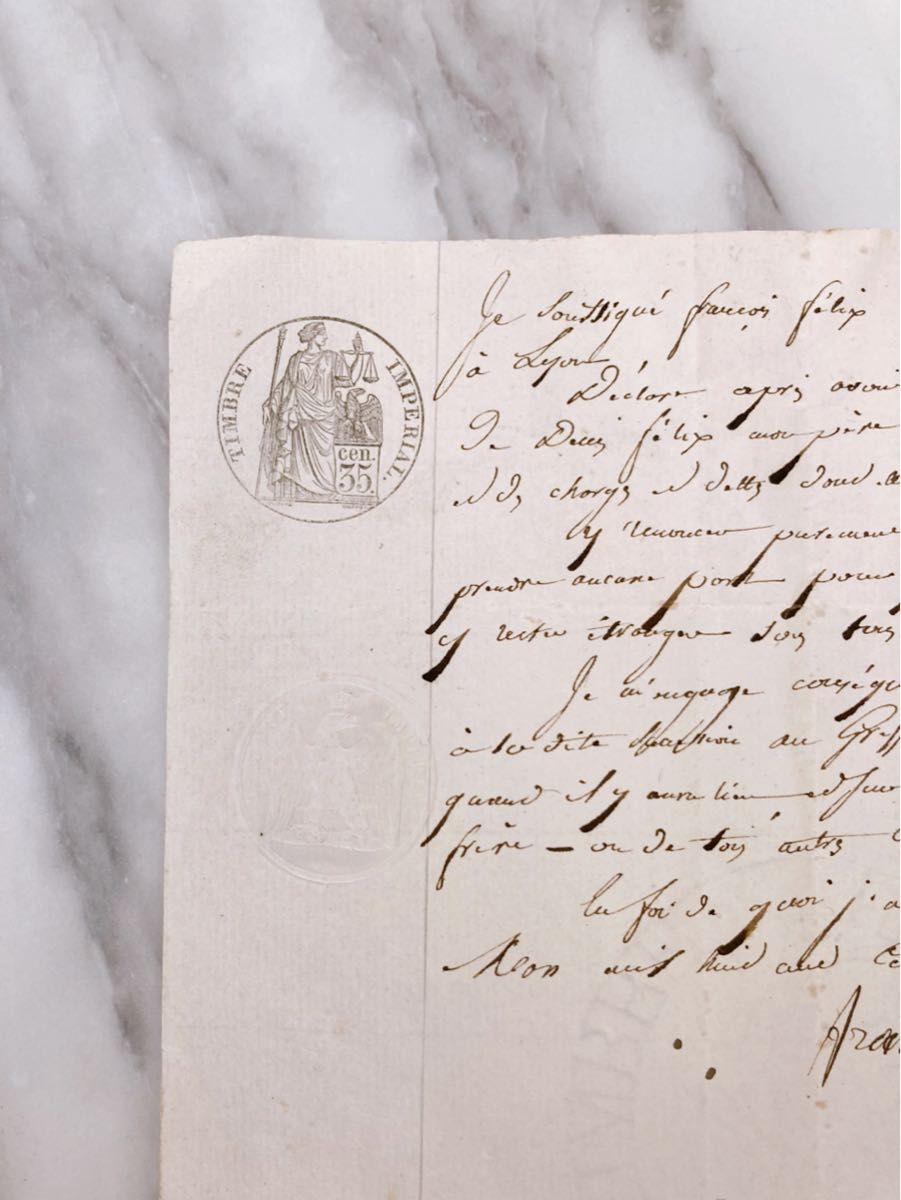 TIMBRE IMPERIAL.
cen.
35.
Je soussigné françois félix
à Lyon
Déclare après avoir
De Denis félix mon père
et des charges et dettes dont
y renoncer purement
prendre aucune part pour
y rester étranger sous tous
Je m'engage conséqu
à la dite au Greff
quand il y aura lieu
frère – ou de tous autres
En foi de quoi j'a
mil huit cent
Fran